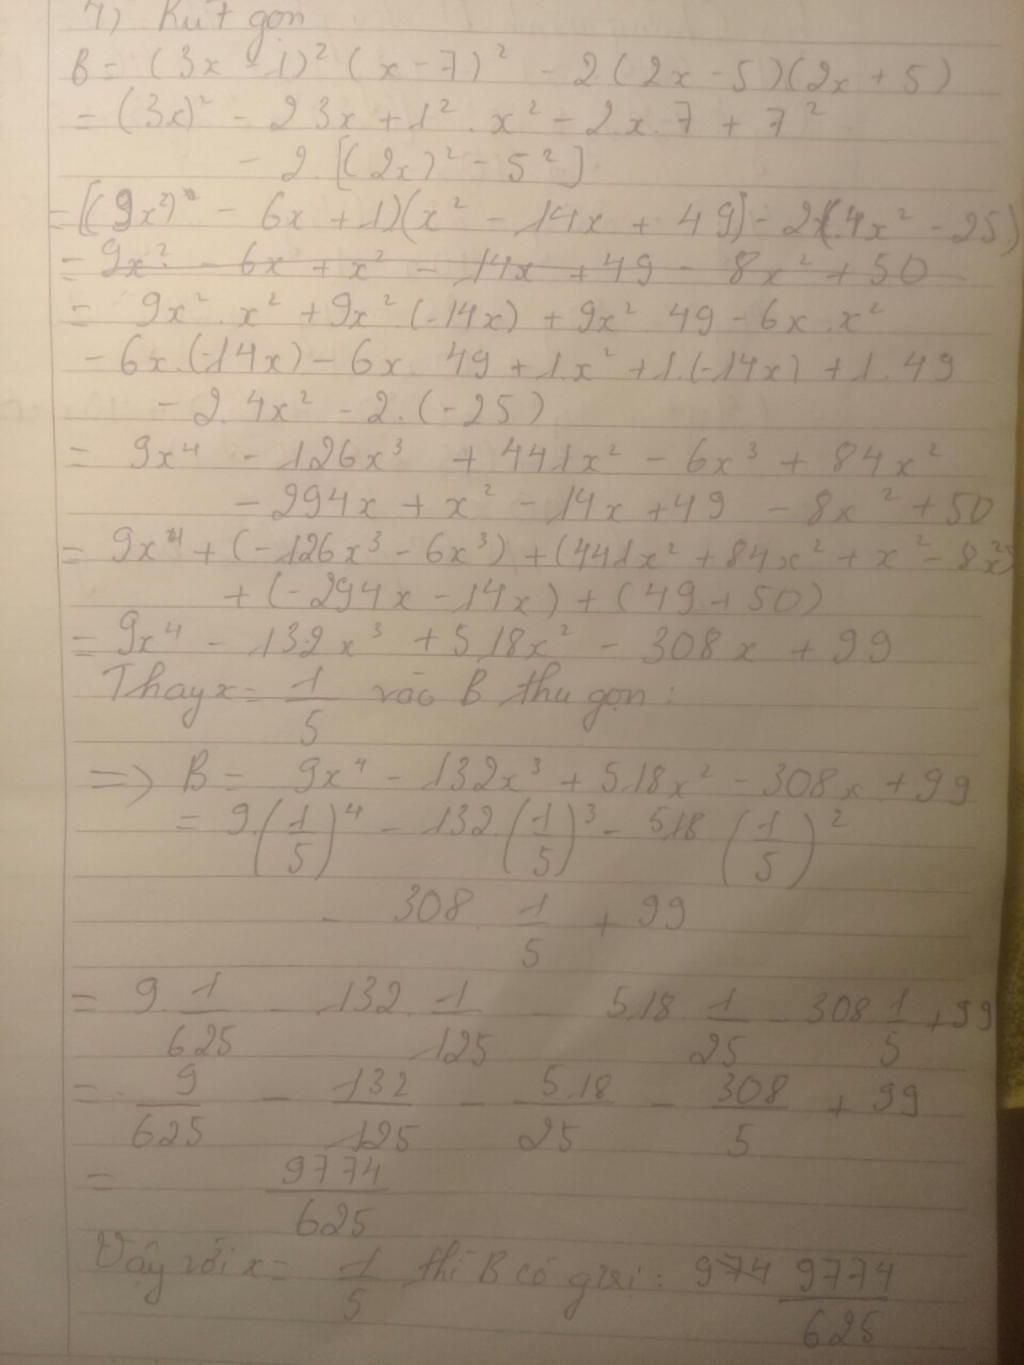 7) Rút gọn
B = (3x - 1)² (x - 7)² - 2(2x - 5)(2x + 5)
= (3x)² - 2 3x + 1² . x² - 2.x.7 + 7²
- 2.[(2x)² - 5²]
= [(9x²) - 6x + 1)(x² - 14x + 49] - 2(4x² - 25)
= 9x² - 6x + x² - 14x + 49 - 8x² + 50
= 9x² . x² + 9x².(-14x) + 9x² 49 - 6x . x²
- 6x.(-14x) - 6x. 49 + 1.x² + 1.(-14x) + 1.49
- 2.4x² - 2.(-25)
= 9x⁴ - 126x³ + 441x² - 6x³ + 84x²
- 294x + x² - 14x + 49 - 8x² + 50
= 9x⁴ + (-126x³ - 6x³) + (441x² + 84x² + x² - 8x²)
+ (-294x - 14x) + (49 + 50)
= 9x⁴ - 132x³ + 518x² - 308x + 99
Thay x = 1/5 vào B thu gọn:
=> B = 9x⁴ - 132x³ + 518x² - 308x + 99
= 9.(1/5)⁴ - 132.(1/5)³ - 518 (1/5)²
- 308. 1/5 + 99
= 9. 1/625 - 132. 1/125 - 518 1/25 - 308 1/5 + 99
= 9/625 - 132/125 - 518/25 - 308/5 + 99
= 9774/625
Vậy với x = 1/5 thì B có giá trị: 974 9774/625